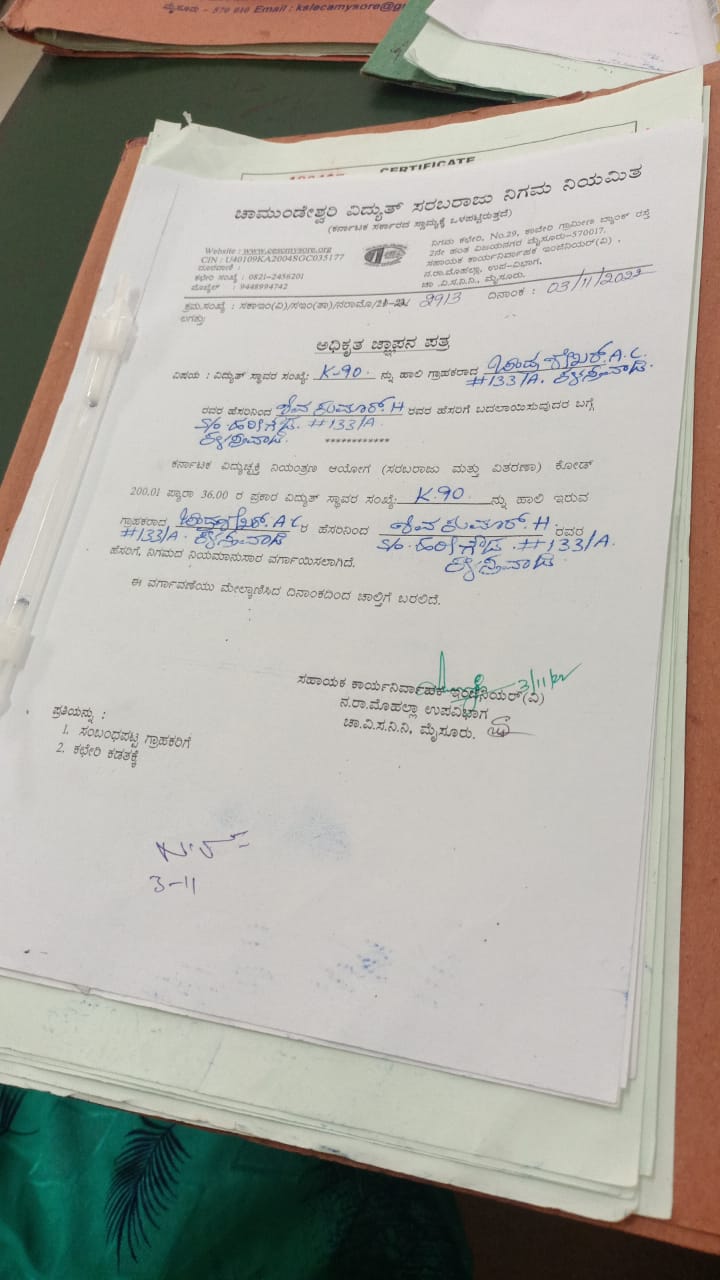 ಮೈಸೂರು - 570 010 Email : kslecamysore@g
CERTIFICATE
ಚಾಮುಂಡೇಶ್ವರಿ ವಿದ್ಯುತ್ ಸರಬರಾಜು ನಿಗಮ ನಿಯಮಿತ
(ಕರ್ನಾಟಕ ಸರ್ಕಾರದ ಸ್ವಾಮ್ಯಕ್ಕೆ ಒಳಪಟ್ಟಿರುತ್ತದೆ)
Website : www.cescmysore.org
CIN : U40109KA2004SGC035177
ದೂರವಾಣಿ :
ಕಛೇರಿ ಸಂಖ್ಯೆ : 0821-2456201
ಮೊಬೈಲ್ : 9448994742
ನಿಗಮ ಕಛೇರಿ, No.29, ಕಾವೇರಿ ಗ್ರಾಮೀಣ ಬ್ಯಾಂಕ್ ರಸ್ತೆ
2ನೇ ಹಂತ ವಿಜಯನಗರ ಮೈಸೂರು-570017.
ಸಹಾಯಕ ಕಾರ್ಯನಿರ್ವಾಹಕ ಇಂಜಿನಿಯರ್(ವಿ) ,
ನ.ರಾ.ಮೊಹಲ್ಲಾ, ಉಪ-ವಿಭಾಗ,
ಚಾ .ವಿ.ಸ.ನಿ.ನಿ., ಮೈಸೂರು.
ಕ್ರಮ.ಸಂಖ್ಯೆ : ಸಕಾಇಂ(ವಿ)/ಸಇಂ(ತಾ)/ನರಾಮೊ/ 2913 ದಿನಾಂಕ : 03/11/2022
ಲಗತ್ತು:
ಅಧಿಕೃತ ಜ್ಞಾಪನ ಪತ್ರ
ವಿಷಯ : ವಿದ್ಯುತ್ ಸ್ಥಾವರ ಸಂಖ್ಯೆ: K-90. ನ್ನು ಹಾಲಿ ಗ್ರಾಹಕರಾದ ಚಂದ್ರಶೇಖರ್.A.C.
#133/A.
ರವರ ಹೆಸರಿನಿಂದ ಶಿವಕುಮಾರ್.H ರವರ ಹೆಸರಿಗೆ ಬದಲಾಯಿಸುವುದರ ಬಗ್ಗೆ
S/o. ಹರೀಗೌಡ. #133/A.
************
ಕರ್ನಾಟಕ ವಿದ್ಯುಚ್ಛಕ್ತಿ ನಿಯಂತ್ರಣ ಆಯೋಗ (ಸರಬರಾಜು ಮತ್ತು ವಿತರಣಾ) ಕೋಡ್
200.01 ಪ್ಯಾರಾ 36.00 ರ ಪ್ರಕಾರ ವಿದ್ಯುತ್ ಸ್ಥಾವರ ಸಂಖ್ಯೆ: K.90. ನ್ನು ಹಾಲಿ ಇರುವ
ಗ್ರಾಹಕರಾದ ಚಂದ್ರಶೇಖರ್.A.C ರ ಹೆಸರಿನಿಂದ ಶಿವಕುಮಾರ್.H. ರವರ
#133/A. S/o. ಹರೀಗೌಡ. #133/A.
ಹೆಸರಿಗೆ, ನಿಗಮದ ನಿಯಮಾನುಸಾರ ವರ್ಗಾಯಿಸಲಾಗಿದೆ.
ಈ ವರ್ಗಾವಣೆಯು ಮೇಲ್ಕಾಣಿಸಿದ ದಿನಾಂಕದಿಂದ ಚಾಲ್ತಿಗೆ ಬರಲಿದೆ.
3/11/22
ಸಹಾಯಕ ಕಾರ್ಯನಿರ್ವಾಹಕ ಇಂಜಿನಿಯರ್(ವಿ)
ನ.ರಾ.ಮೊಹಲ್ಲಾ ಉಪವಿಭಾಗ
ಚಾ.ವಿ.ಸ.ನಿ.ನಿ, ಮೈಸೂರು.
ಪ್ರತಿಯನ್ನು :
1. ಸಂಬಂಧಪಟ್ಟ ಗ್ರಾಹಕರಿಗೆ
2. ಕಛೇರಿ ಕಡತಕ್ಕೆ
3-11